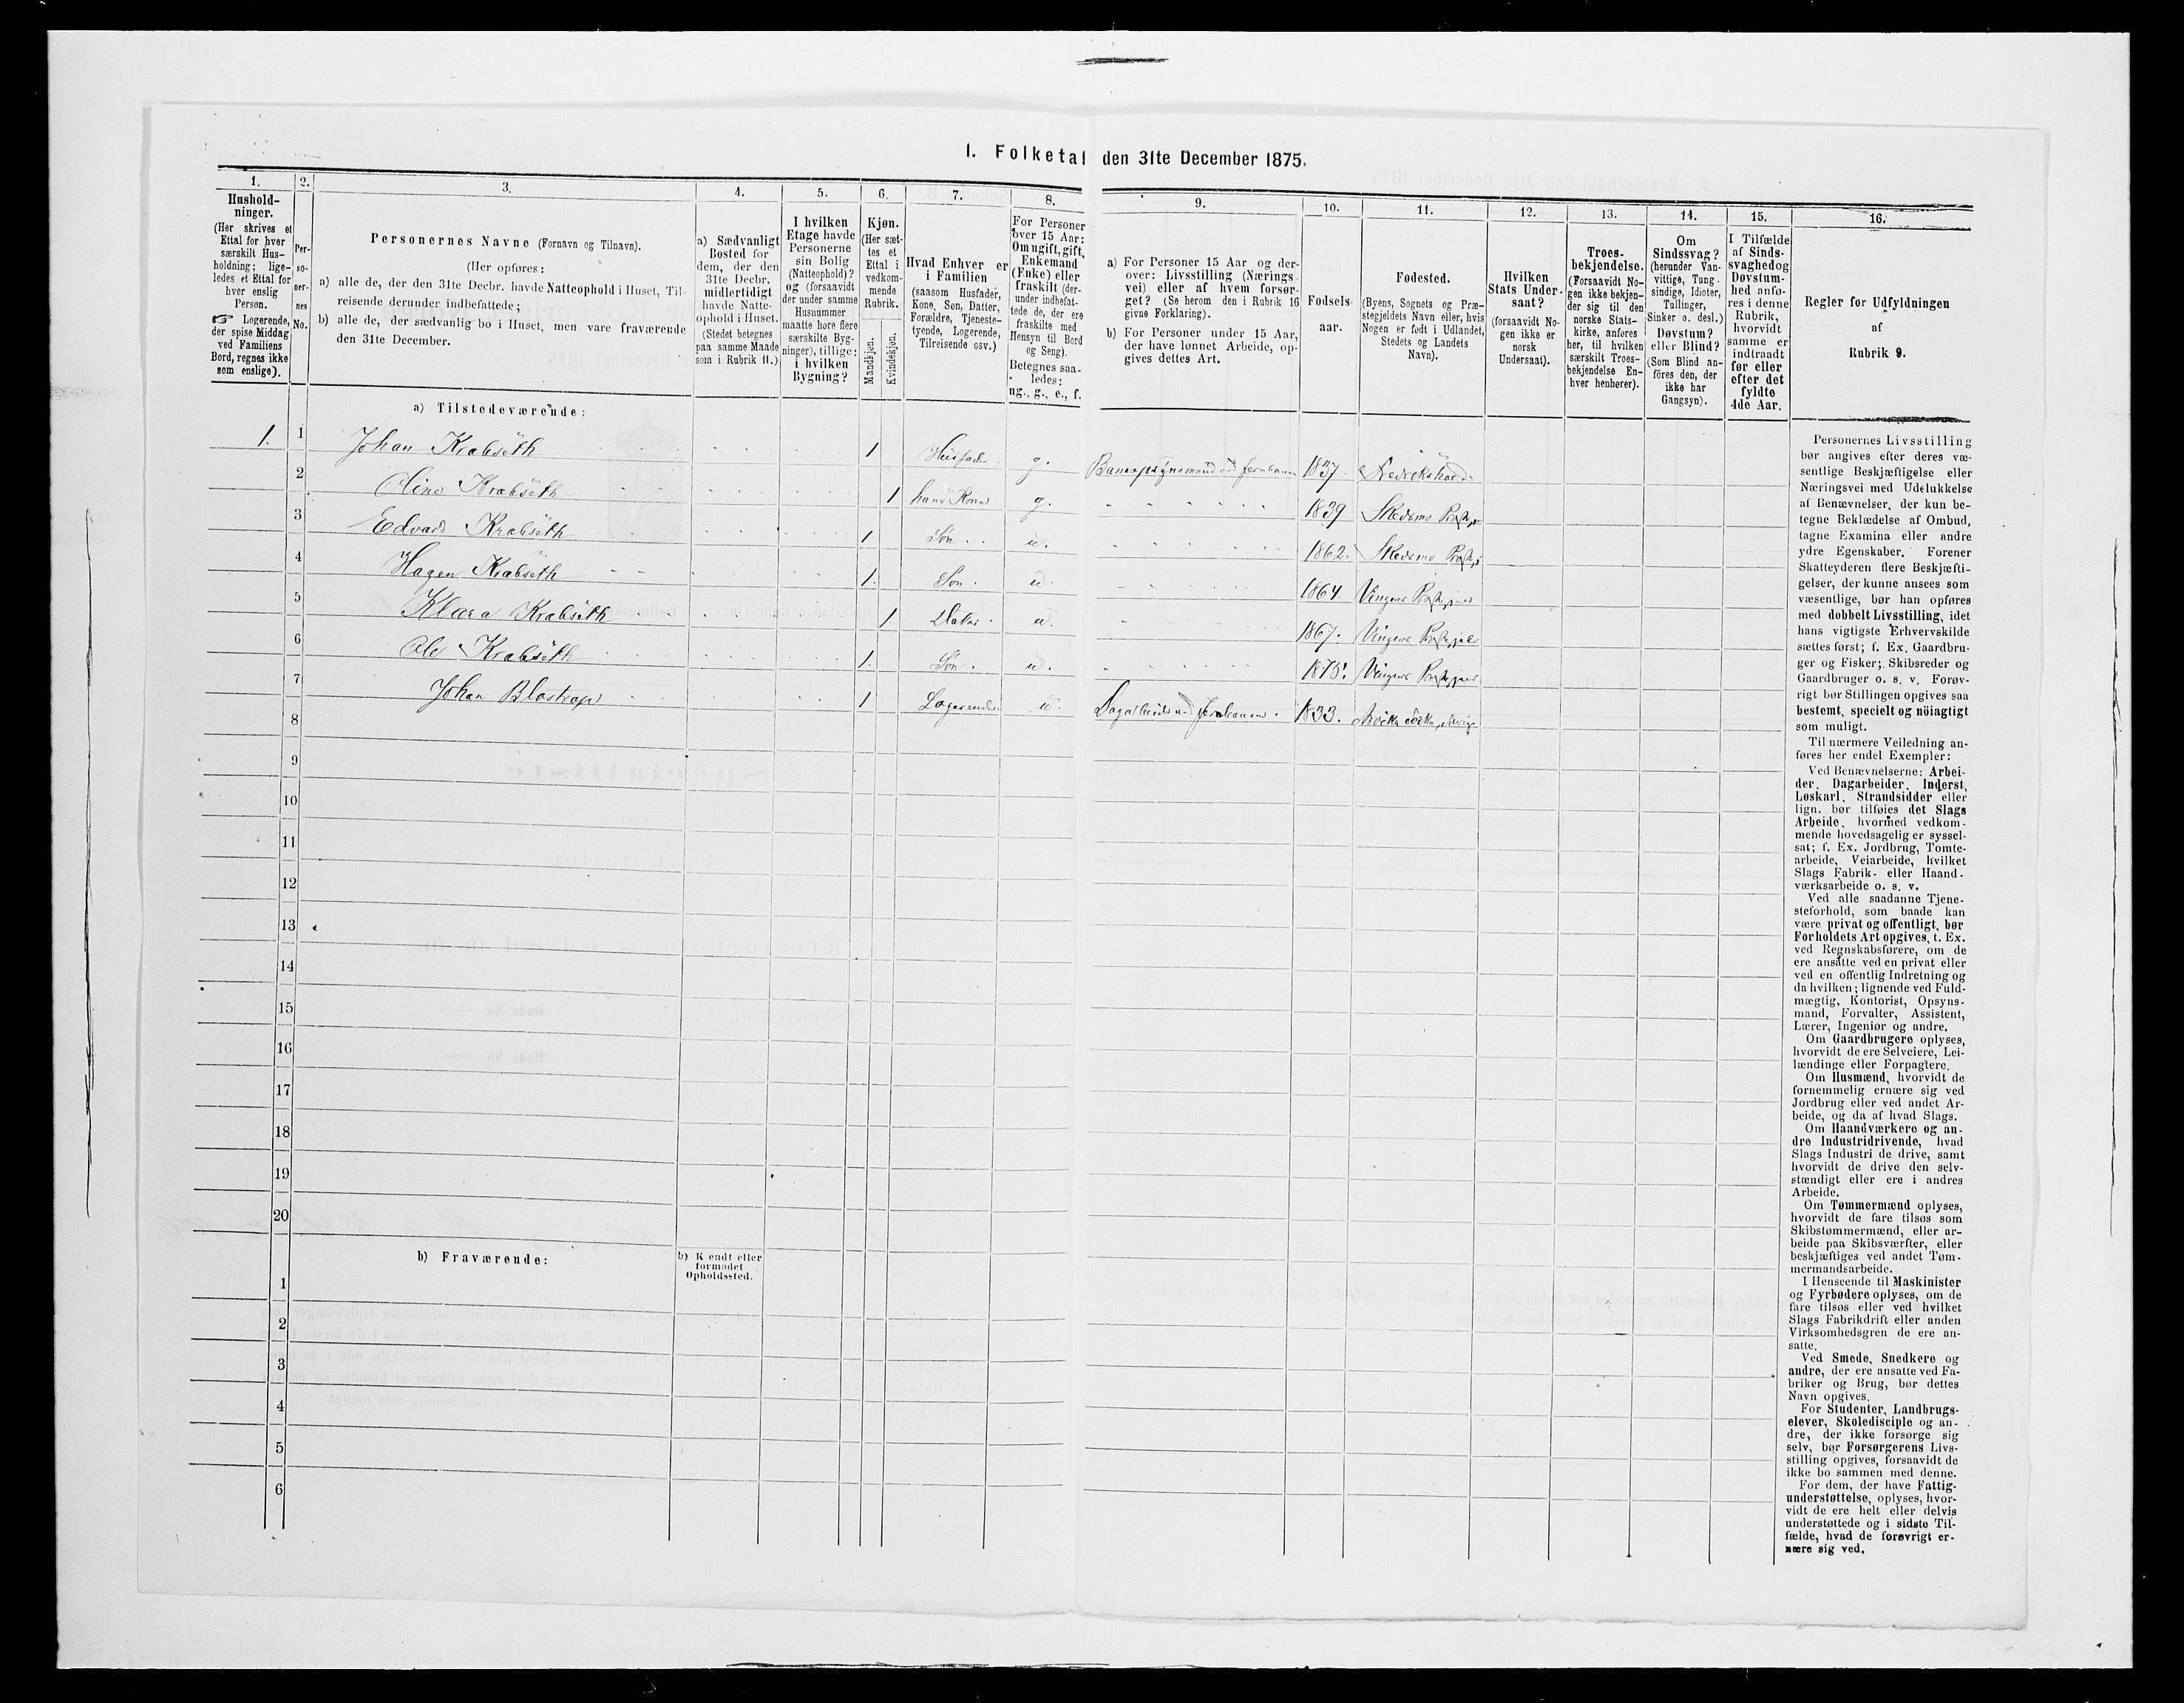 I. Folketal den 31te December 1875.
1.
Hushold-
ninger.
(Her skrives et
Ettal for hver
særskilt Hus-
holdning; lige-
ledes et Ettal for
hver enslig
Person.
☞ Logerende,
der spise Middag
ved Familiens
Bord, regnes ikke
som enslige).
2.
Per-
so-
ner-
nes
No.
3.
Personernes Navne (Fornavn og Tilnavn).
(Her opføres:
a) alle de, der den 31te Decbr. havde Natteophold i Huset, Til-
reisende derunder indbefattede;
b) alle de, der sædvanlig bo i Huset, men vare fraværende
den 31te December.
4.
a) Sædvanligt
Bosted for
dem, der den
31te Decbr.
midlertidigt
havde Natte-
ophold i Huset.
(Stedet betegnes
paa samme Maade
som i Rubrik 11.)
5.
I hvilken
Etage havde
Personerne
sin Bolig
(Natteophold)?
og (forsaavidt
der under samme
Husnummer
maatte høre flere
særskilte Byg-
ninger), tillige:
i hvilken
Bygning?
6.
Kjøn.
(Her sæt-
tes et
Ettal i
vedkom-
mende
Rubrik.
Mandkjøn.
Kvindekjøn.
7.
Hvad Enhver er
i Familien
(saasom Husfader,
Kone, Søn, Datter,
Forældre, Tjeneste-
tyende, Logerende,
Tilreisende osv.)
8.
For Personer
over 15 Aar:
Om ugift, gift,
Enkemand
(Enke) eller
fraskilt (der-
under indbefat-
tede de, der ere
fraskilte med
Hensyn til Bord
og Seng).
Betegnes saa-
ledes:
ug., g., e., f.
9.
a) For Personer 15 Aar og der-
over: Livsstilling (Nærings-
vei) eller af hvem forsør-
get? (Se herom den i Rubrik 16
givne Forklaring).
b) For Personer under 15 Aar,
der have lønnet Arbeide, op-
gives dettes Art.
10.
Fødsels-
aar.
11.
Fødested.
(Byens, Sognets og Præ-
stegjeldets Navn eller, hvis
Nogen er født i Udlandet,
Stedets og Landets
Navn).
12.
Hvilken
Stats Under-
saat?
(forsaavidt No-
gen ikke er
norsk
Undersaat).
13.
Troes-
bekjendelse.
(Forsaavidt No-
gen ikke bekjen-
der sig til den
norske Stats-
kirke, anføres
her, til hvilken
særskilt Troes-
bekjendelse En-
hver henhører).
14.
Om
Sindssvag?
(herunder Van-
vittige, Tung-
sindige, Idioter,
Tullinger,
Sinker o. desl.)
Døvstum?
eller Blind?
(Som Blind an-
føres den, der
ikke har
Gangsyn).
15.
I Tilfælde
af Sinds-
svaghed og
Døvstum-
hed anfø-
res i denne
Rubrik,
hvorvidt
samme er
indtraadt
før eller
efter det
fyldte
4de Aar.
16.
Regler for Udfyldningen
af
Rubrik 9.
a) Tilstedeværende:
1. 1 Johan Krabsëth 1 Husfader g. 1837. 
2 Oline Krabsëth 1 hans Kone g. 1839 Skedsmo
3 Edvard Krabsëth 1 Søn u. 1862. Skedsmo
4 Hagen Krabsëth 1. Søn u. 1864
5 Klara Krabsëth 1 u. 1867.
6 Ole Krabsëth 1. Søn. u. 1875.
7 Johan 1 Logerende u. 1833.
8
9
10
11
12
13
14
15
16
17
18
19
20
b) Fraværende:
b) Kendt eller
formodet
Opholdssted.
1
2
3
4
5
6
Personernes Livsstilling
bør angives efter deres væ-
sentlige Beskjæftigelse eller
Næringsvei med Udelukkelse
af Benævnelser, der kun be-
tegne Beklædelse af Ombud,
tagne Examina eller andre
ydre Egenskaber. Forener
Skatteyderen flere Beskjæfti-
gelser, der kunne ansees som
væsentlige, bør han opføres
med dobbelt Livsstilling, idet
hans vigtigste Erhvervskilde
sættes først; f. Ex. Gaardbru-
ger og Fisker; Skibsreder og
Gaardbruger o. s. v. Forøv-
rigt bør Stillingen opgives saa
bestemt, specielt og nöiagtigt
som muligt.
Til nærmere Veiledning an-
føres her endel Exempler:
Ved Benævnelserne: Arbei-
der, Dagarbeider, Inderst,
Løskarl, Strandsidder eller
lign. bør tilføies det Slags
Arbeide, hvormed vedkom-
mende hovedsagelig er syssel-
sat; f. Ex. Jordbrug, Tomte-
arbeide, Veiarbeide, hvilket
Slags Fabrik- eller Haand-
værksarbeide o. s. v.
Ved alle saadanne Tjene-
steforhold, som baade kan
være privat og offentligt, bør
Forholdets Art opgives, t. Ex.
ved Regnskabsførere, om de
ere ansatte ved en privat eller
ved en offentlig Indretning og
da hvilken; lignende ved Fuld-
mægtig, Kontorist, Opsyns-
mand, Forvalter, Assistent,
Lærer, Ingeniør og andre.
Om Gaardbrugere oplyses,
hvorvidt de ere Selveiere, Lei-
lændinge eller Forpagtere.
Om Husmænd, hvorvidt de
fornemmelig ernære sig ved
Jordbrug eller ved andet Ar-
beide, og da af hvad Slags.
Om Haandværkere og an-
dre Industridrivende, hvad
Slags Industri de drive, samt
hvorvidt de drive den selv-
stændigt eller ere i andres
Arbeide.
Om Tømmermænd oplyses,
hvorvidt de fare tilsøs som
Skibstømmermænd, eller ar-
beide paa Skibsværfter, eller
beskjæftiges ved andet Tøm-
mermandsarbeide.
I Henseende til Maskinister
og Fyrbødere oplyses, om de
fare tilsøs eller ved hvilket
Slags Fabrikdrift eller anden
Virksomhedsgren de ere an-
satte.
Ved Smede, Snedkere og
andre, der ere ansatte ved Fa-
briker og Brug, bør dettes
Navn opgives.
For Studenter, Landbrugs-
elever, Skoledisciple og an-
dre, der ikke forsørge sig
selv, bør Forsørgerens Livs-
stilling opgives, forsaavidt de
ikke bo sammen med denne.
For dem, der have Fattig-
understøttelse, oplyses, hvor-
vidt de ere helt eller delvis
understøttede og i sidste Til-
fælde, hvad de forøvrigt er-
nære sig ved.